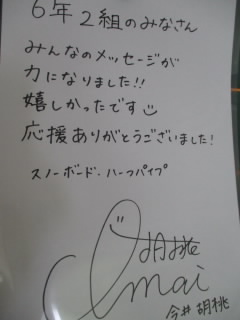 6年2組のみなさん
みんなのメッセージが
力になりました!!
嬉しかったです
応援ありがとうございました!
スノーボード・ハーフパイプ
胡桃
Imai
今井 胡桃